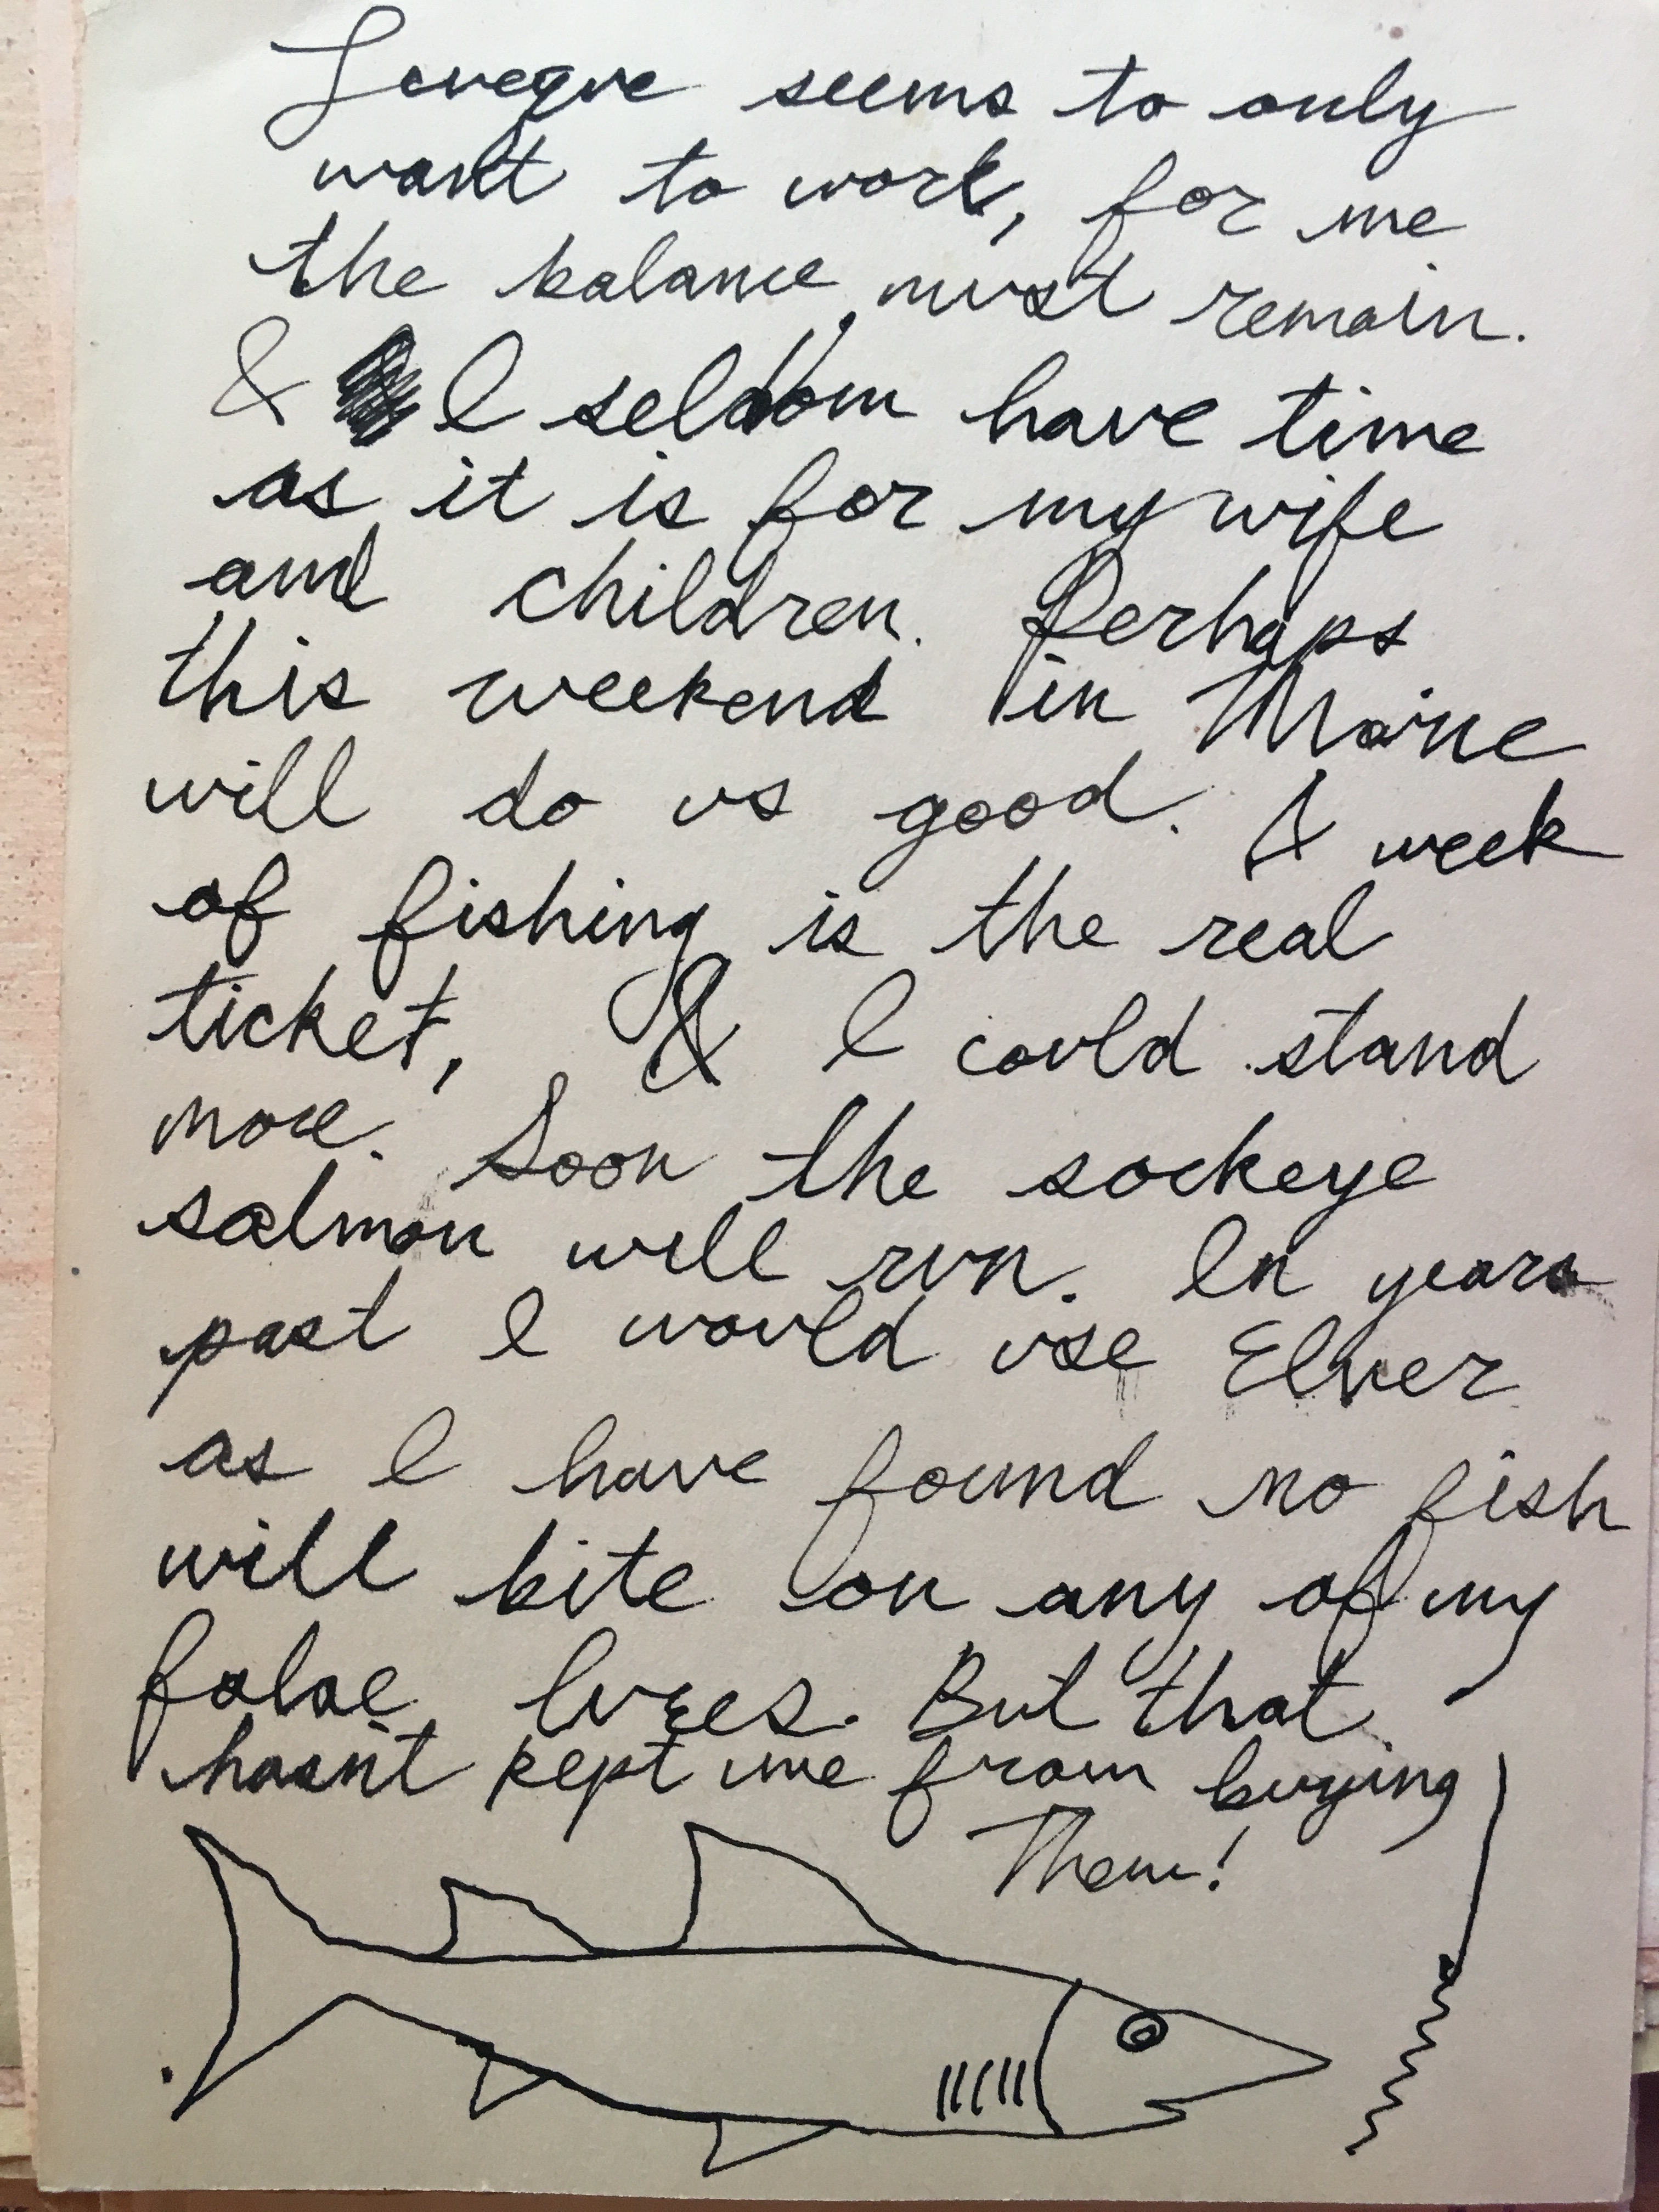 Leveque seems to only
want to work, for me
the balance must remain.
& I seldom have time
as it is for my wife
and children. Perhaps
this weekend in Maine
will do us good. A week
of fishing is the real
ticket, & I could stand
more. Soon the sockeye
salmon will run. In years
past I would use Elver
as I have found no fish
will bite on any of my
false lures. But that
hasn't kept me from buying
Them!